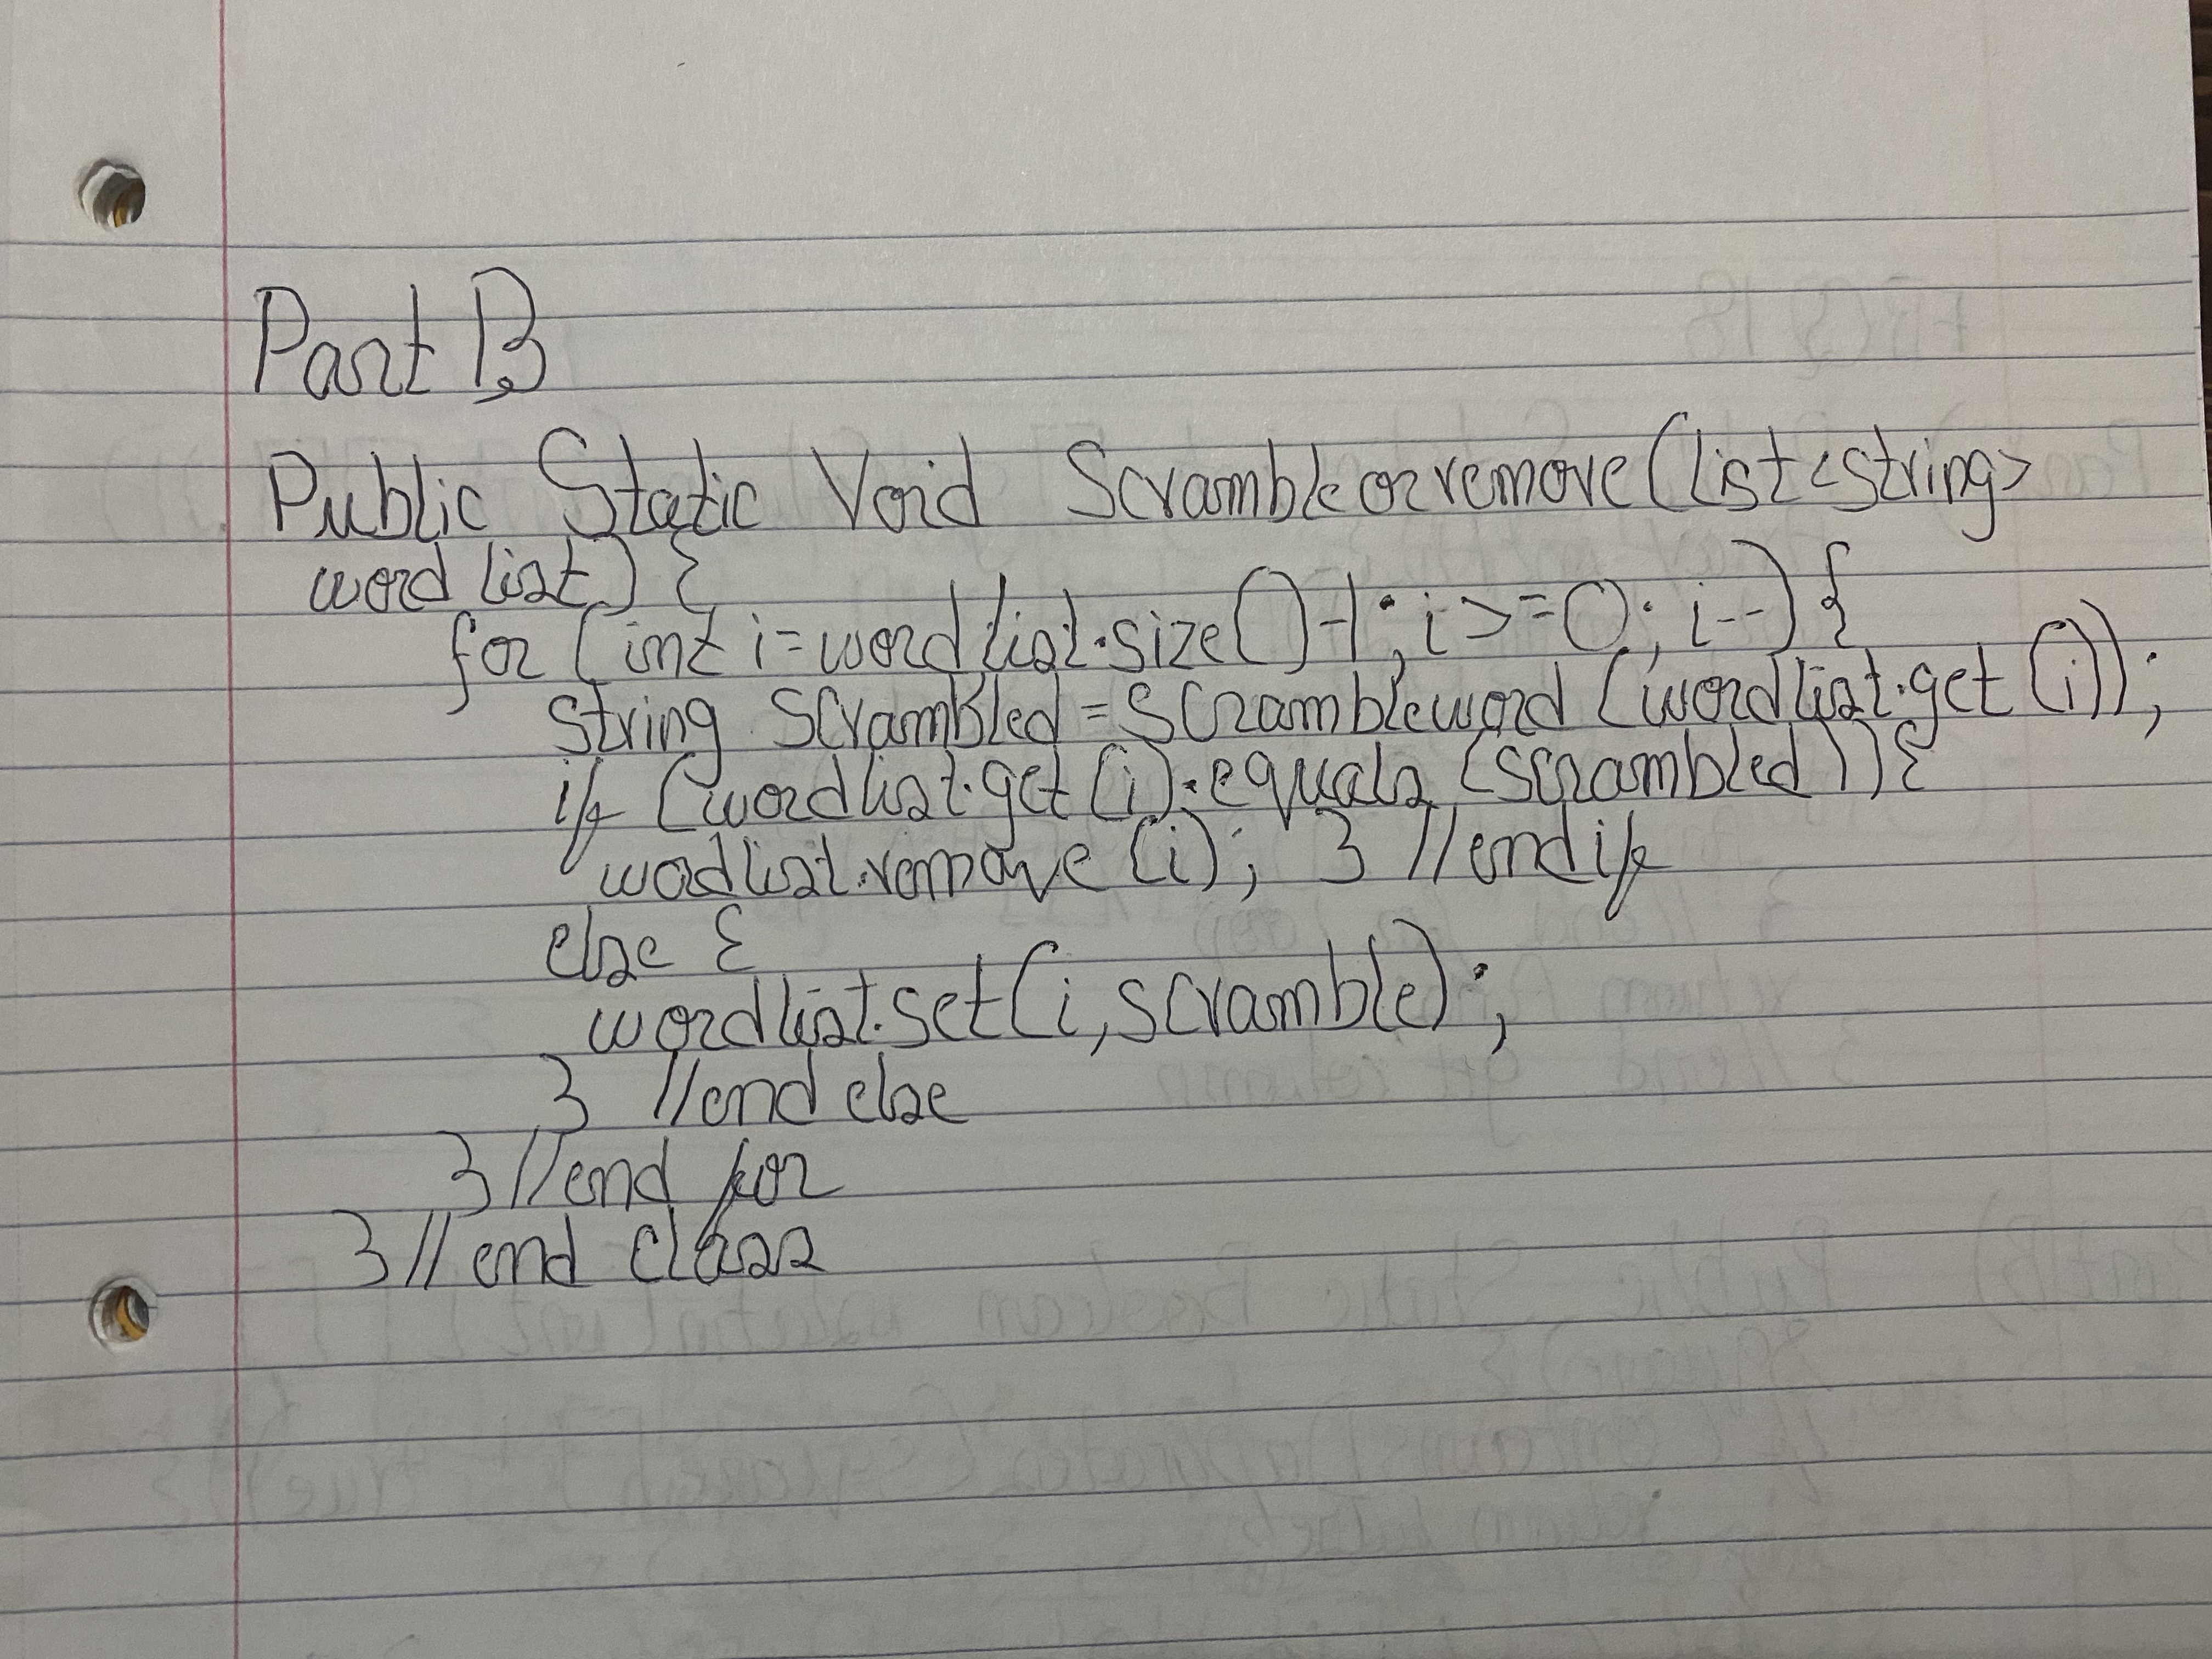 Part B
Public Static Void Scrambleorremove(List<string>
wordlist) {
for (int i=wordlist.size()-1; i>=0; i--) {
string scrambled=scrambleword (wordlist.get(i));
if (wordlist.get(i).equals(scrambled)){
wodlist.remove(i); } //endif
else {
wordlist.set(i,scramble);
} //end else
} //end for
} // end class